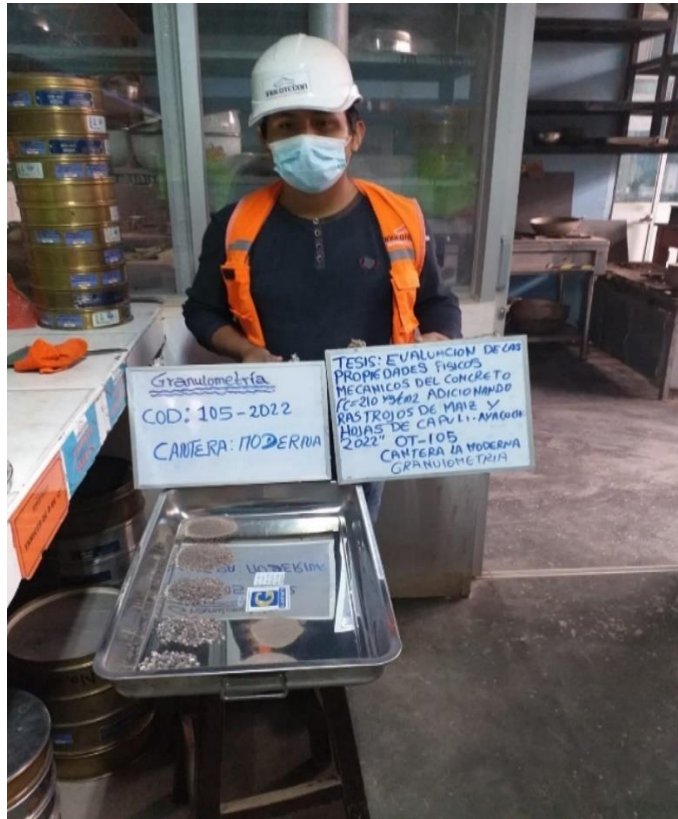 Granulometría
COD: 105-2022
CANTERA: MODERNA
TESIS: EVALUACION DE LAS
PROPIEDADES FISICOS
MECANICOS DEL CONCRETO
ADICIONANDO
RASTROJOS DE MAIZ Y
HOJAS DE CAPULI-AYACUCHO
2022" OT-105
CANTERA LA MODERNA
GRANULOMETRIA